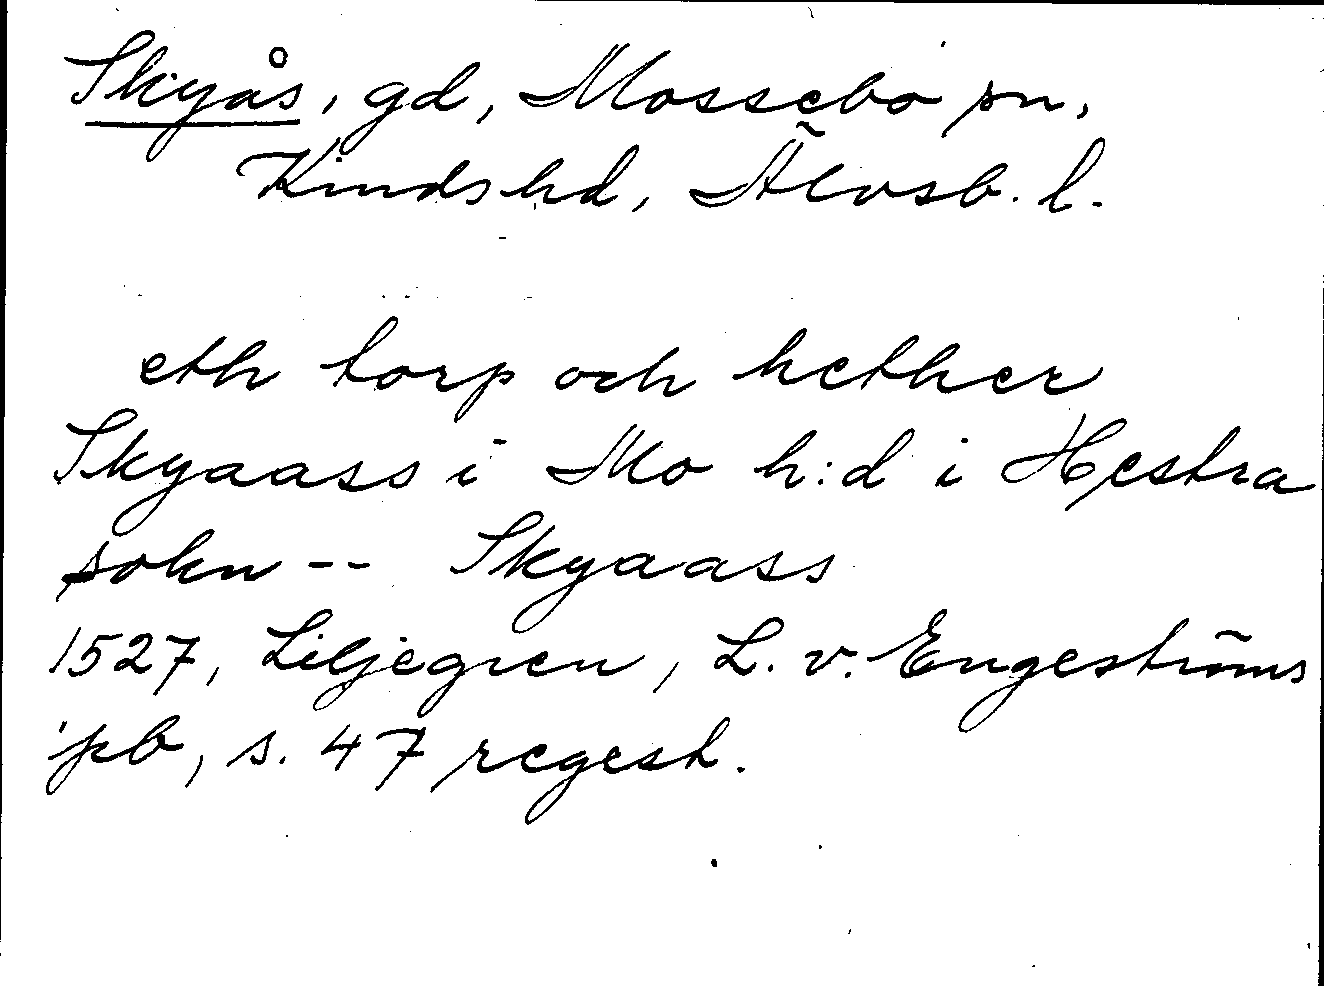 Skyås, gd, Mossebo sn,
Kinds hd, Älvsb. l.
eth torp och hether
Skyaass i Mo h:d i Hestra
sokn -- Skyaass
1527, Liljegren, L. v. Engeströms
pb, s. 47 regest.